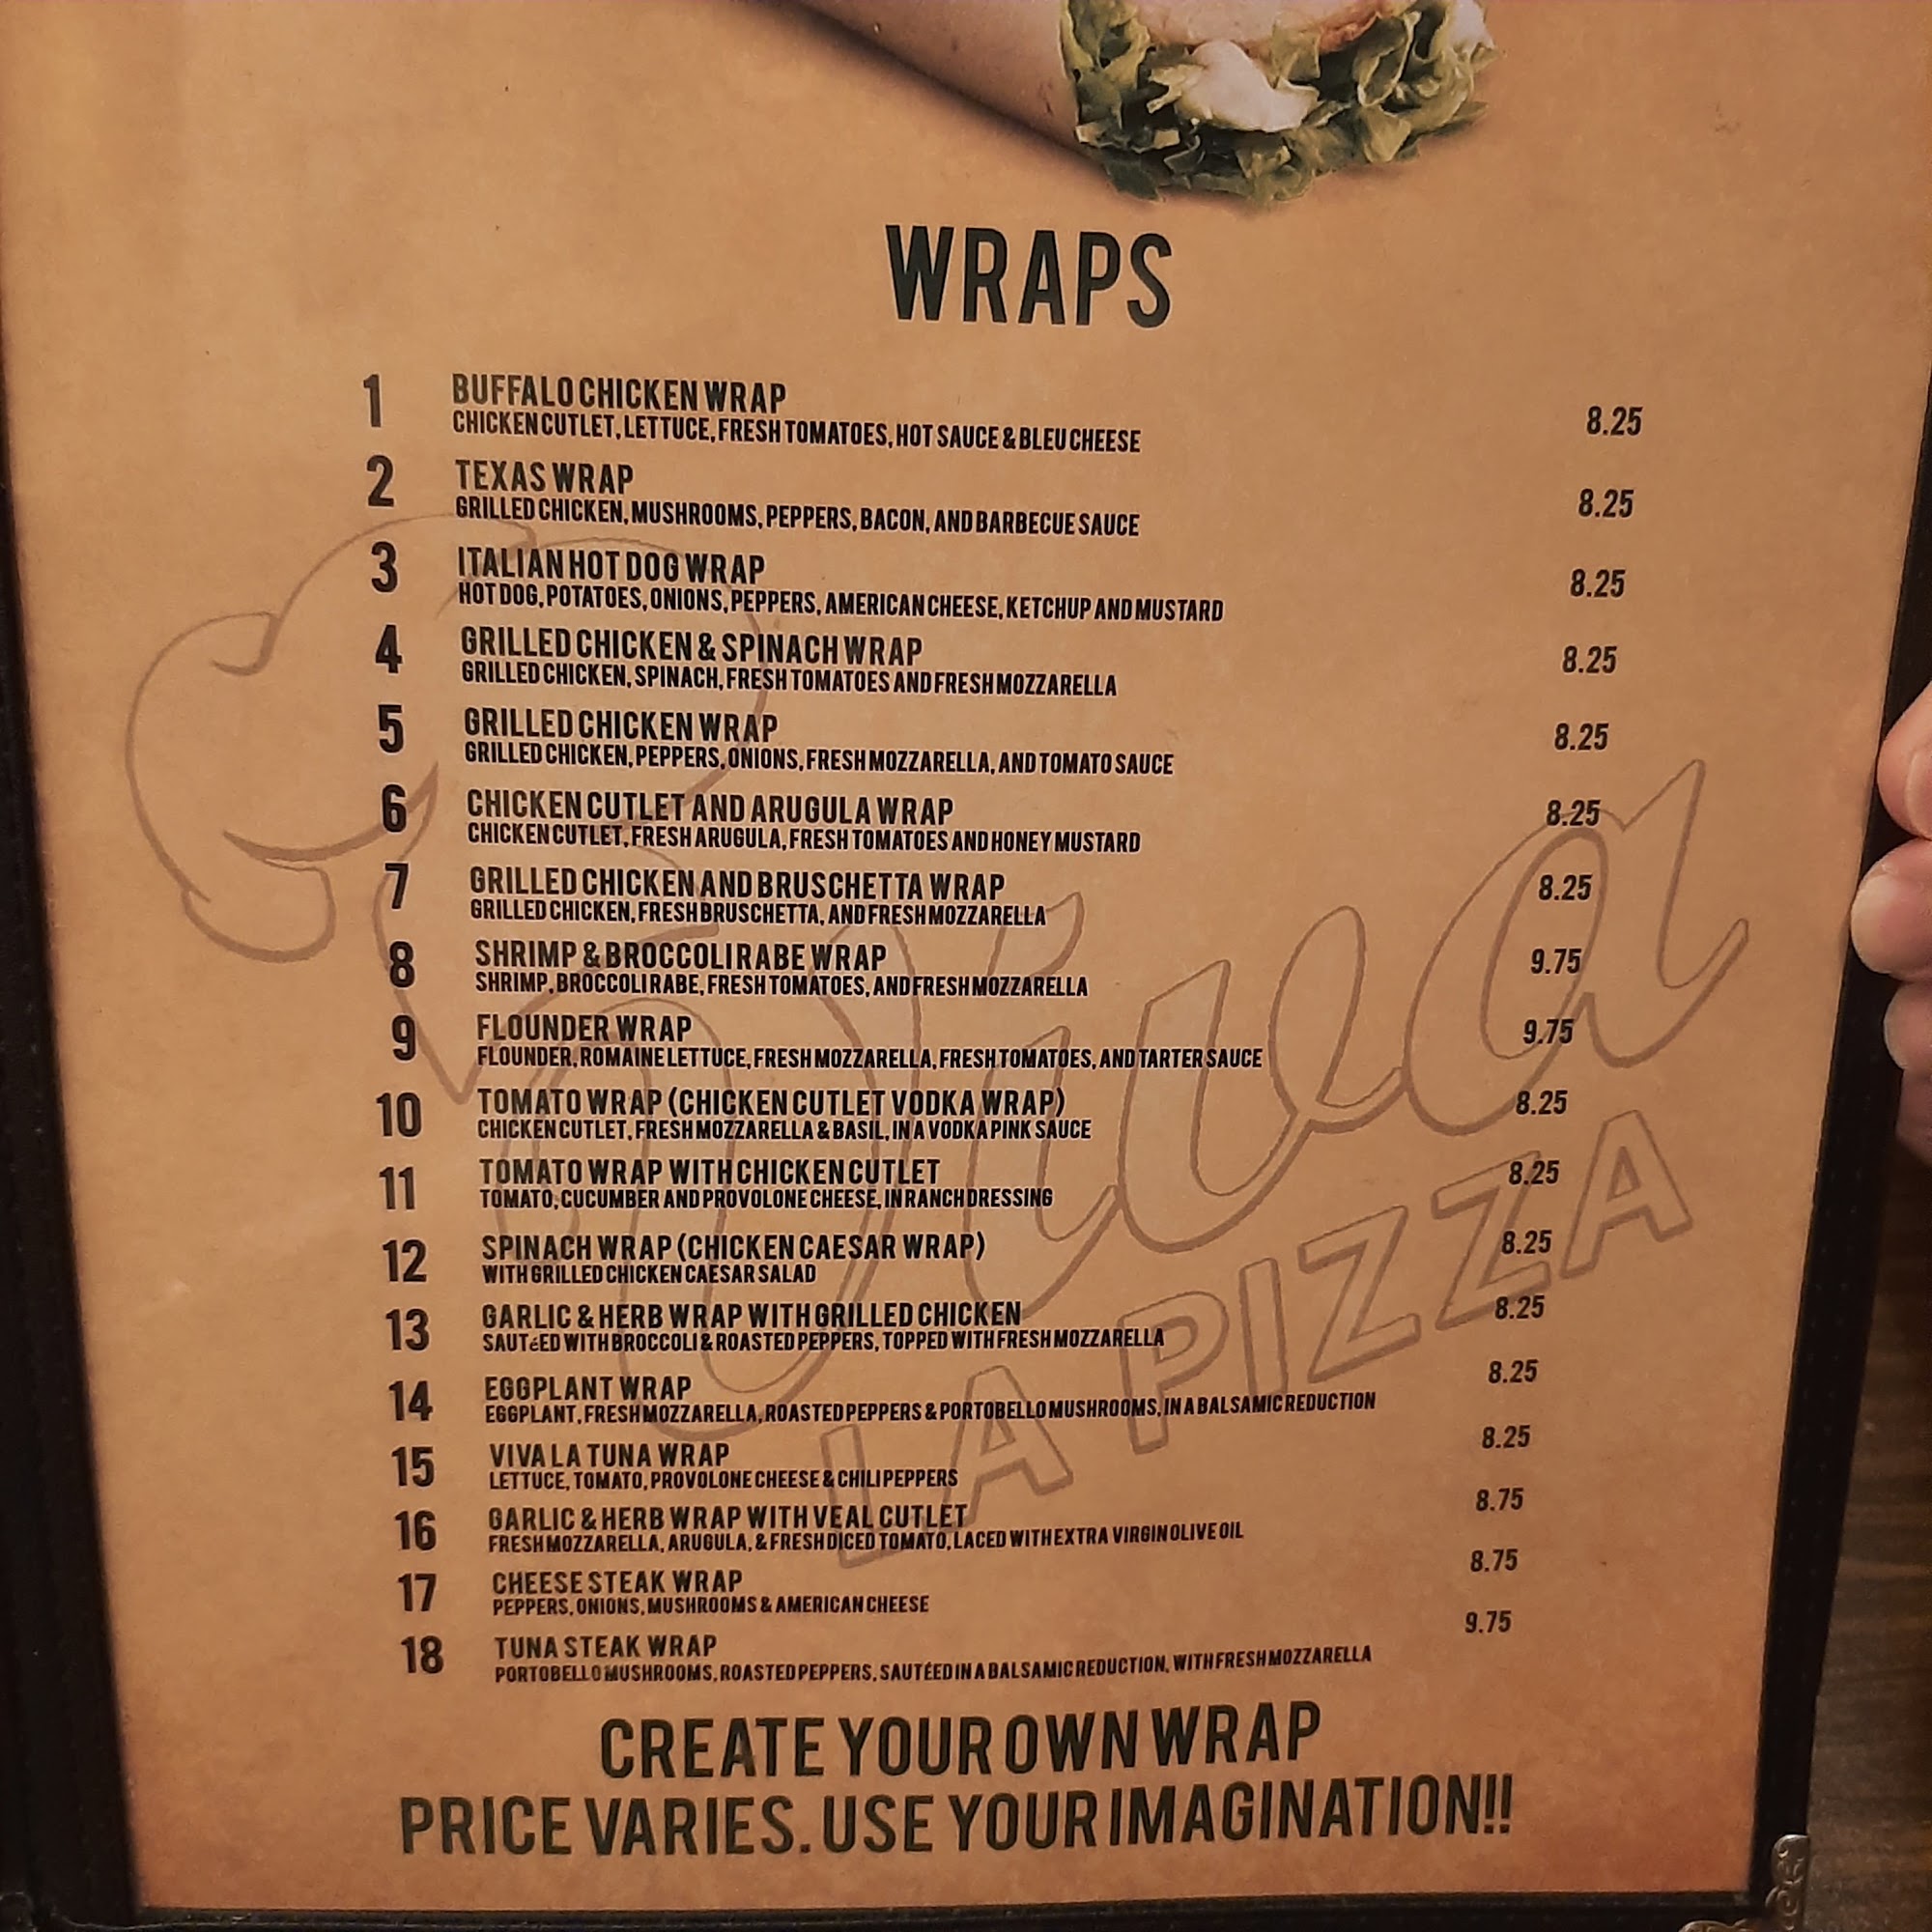 WRAPS
1 BUFFALO CHICKEN WRAP
CHICKEN CUTLET, LETTUCE, FRESH TOMATOES, HOT SAUCE & BLEU CHEESE 8.25
2 TEXAS WRAP
GRILLED CHICKEN, MUSHROOMS, PEPPERS, BACON, AND BARBECUE SAUCE 8.25
3 ITALIAN HOT DOG WRAP
HOT DOG, POTATOES, ONIONS, PEPPERS, AMERICAN CHEESE, KETCHUP AND MUSTARD 8.25
4 GRILLED CHICKEN & SPINACH WRAP
GRILLED CHICKEN, SPINACH, FRESH TOMATOES AND FRESH MOZZARELLA 8.25
5 GRILLED CHICKEN WRAP
GRILLED CHICKEN, PEPPERS, ONIONS, FRESH MOZZARELLA, AND TOMATO SAUCE 8.25
6 CHICKEN CUTLET AND ARUGULA WRAP
CHICKEN CUTLET, FRESH ARUGULA, FRESH TOMATOES AND HONEY MUSTARD 8.25
7 GRILLED CHICKEN AND BRUSCHETTA WRAP
GRILLED CHICKEN, FRESH BRUSCHETTA, AND FRESH MOZZARELLA 8.25
8 SHRIMP & BROCCOLI RABE WRAP
SHRIMP, BROCCOLI RABE, FRESH TOMATOES, AND FRESH MOZZARELLA 9.75
9 FLOUNDER WRAP
FLOUNDER, ROMAINE LETTUCE, FRESH MOZZARELLA, FRESH TOMATOES, AND TARTER SAUCE 9.75
10 TOMATO WRAP (CHICKEN CUTLET VODKA WRAP)
CHICKEN CUTLET, FRESH MOZZARELLA & BASIL, IN A VODKA PINK SAUCE 8.25
11 TOMATO WRAP WITH CHICKEN CUTLET
TOMATO, CUCUMBER AND PROVOLONE CHEESE, IN RANCH DRESSING 8.25
12 SPINACH WRAP (CHICKEN CAESAR WRAP)
WITH GRILLED CHICKEN CAESAR SALAD 8.25
13 GARLIC & HERB WRAP WITH GRILLED CHICKEN
SAUTéED WITH BROCCOLI & ROASTED PEPPERS, TOPPED WITH FRESH MOZZARELLA 8.25
14 EGGPLANT WRAP
EGGPLANT, FRESH MOZZARELLA, ROASTED PEPPERS & PORTOBELLO MUSHROOMS, IN A BALSAMIC REDUCTION 8.25
15 VIVA LA TUNA WRAP
LETTUCE, TOMATO, PROVOLONE CHEESE & CHILI PEPPERS 8.25
16 GARLIC & HERB WRAP WITH VEAL CUTLET
FRESH MOZZARELLA, ARUGULA, & FRESH DICED TOMATO, LACED WITH EXTRA VIRGIN OLIVE OIL 8.75
17 CHEESE STEAK WRAP
PEPPERS, ONIONS, MUSHROOMS & AMERICAN CHEESE 8.75
18 TUNA STEAK WRAP
PORTOBELLO MUSHROOMS, ROASTED PEPPERS, SAUTÉED IN A BALSAMIC REDUCTION, WITH FRESH MOZZARELLA 9.75
Viva
LA PIZZA
CREATE YOUR OWN WRAP
PRICE VARIES. USE YOUR IMAGINATION!!